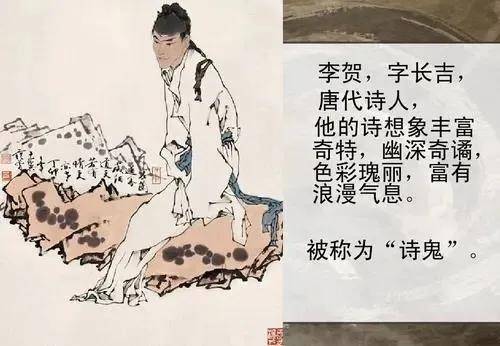 李贺，字长吉，
唐代诗人，
他的诗想象丰富
奇特，幽深奇谲，
色彩瑰丽，富有
浪漫气息。
被称为“诗鬼”。